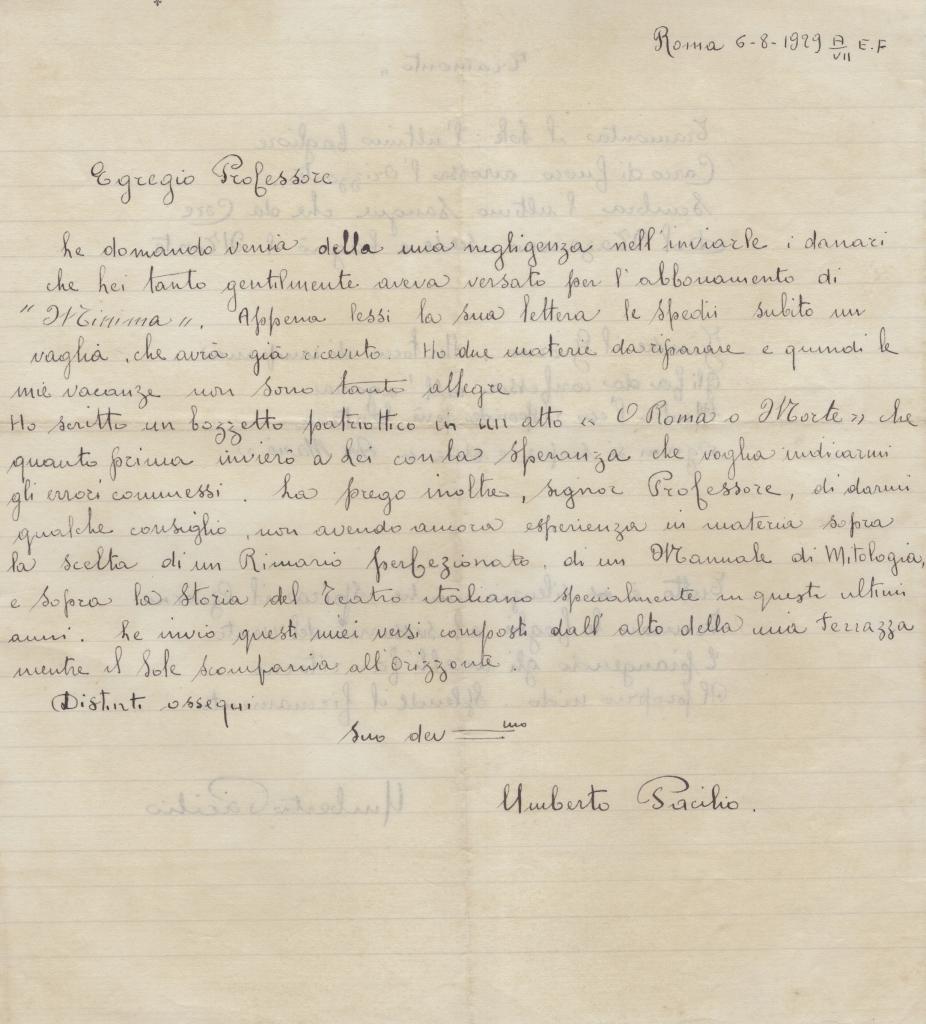 Roma 6-8-1929 A/VII E.F
Egregio Professore
Le domando venia della mia negligenza nell'inviarle i danari
che Lei tanto gentilmente aveva versato per l'abbonamento di
"Minima". Appena lessi la sua lettera le spedii subito un
vaglia, che avrà già ricevuto. Ho due materie da riparare e quindi le
mie vacanze non sono tanto allegre
Ho scritto un bozzetto patriottico in un atto « O Roma o Morte » che
quanto prima invierò a Lei con la speranza che voglia indicarmi
gli errori commessi. La prego inoltre, signor Professore, di darmi
qualche consiglio, non avendo ancora esperienza in materia sopra
la scelta di un Rimario perfezionato, di un Manuale di Mitologia,
e sopra la Storia del Teatro italiano specialmente in questi ultimi
anni. Le invio questi miei versi composti dall'alto della mia Terrazza
mentre il Sole scompariva all'Orizzonte.
Distinti ossequi
Suo dev mo
Umberto Pacilio.